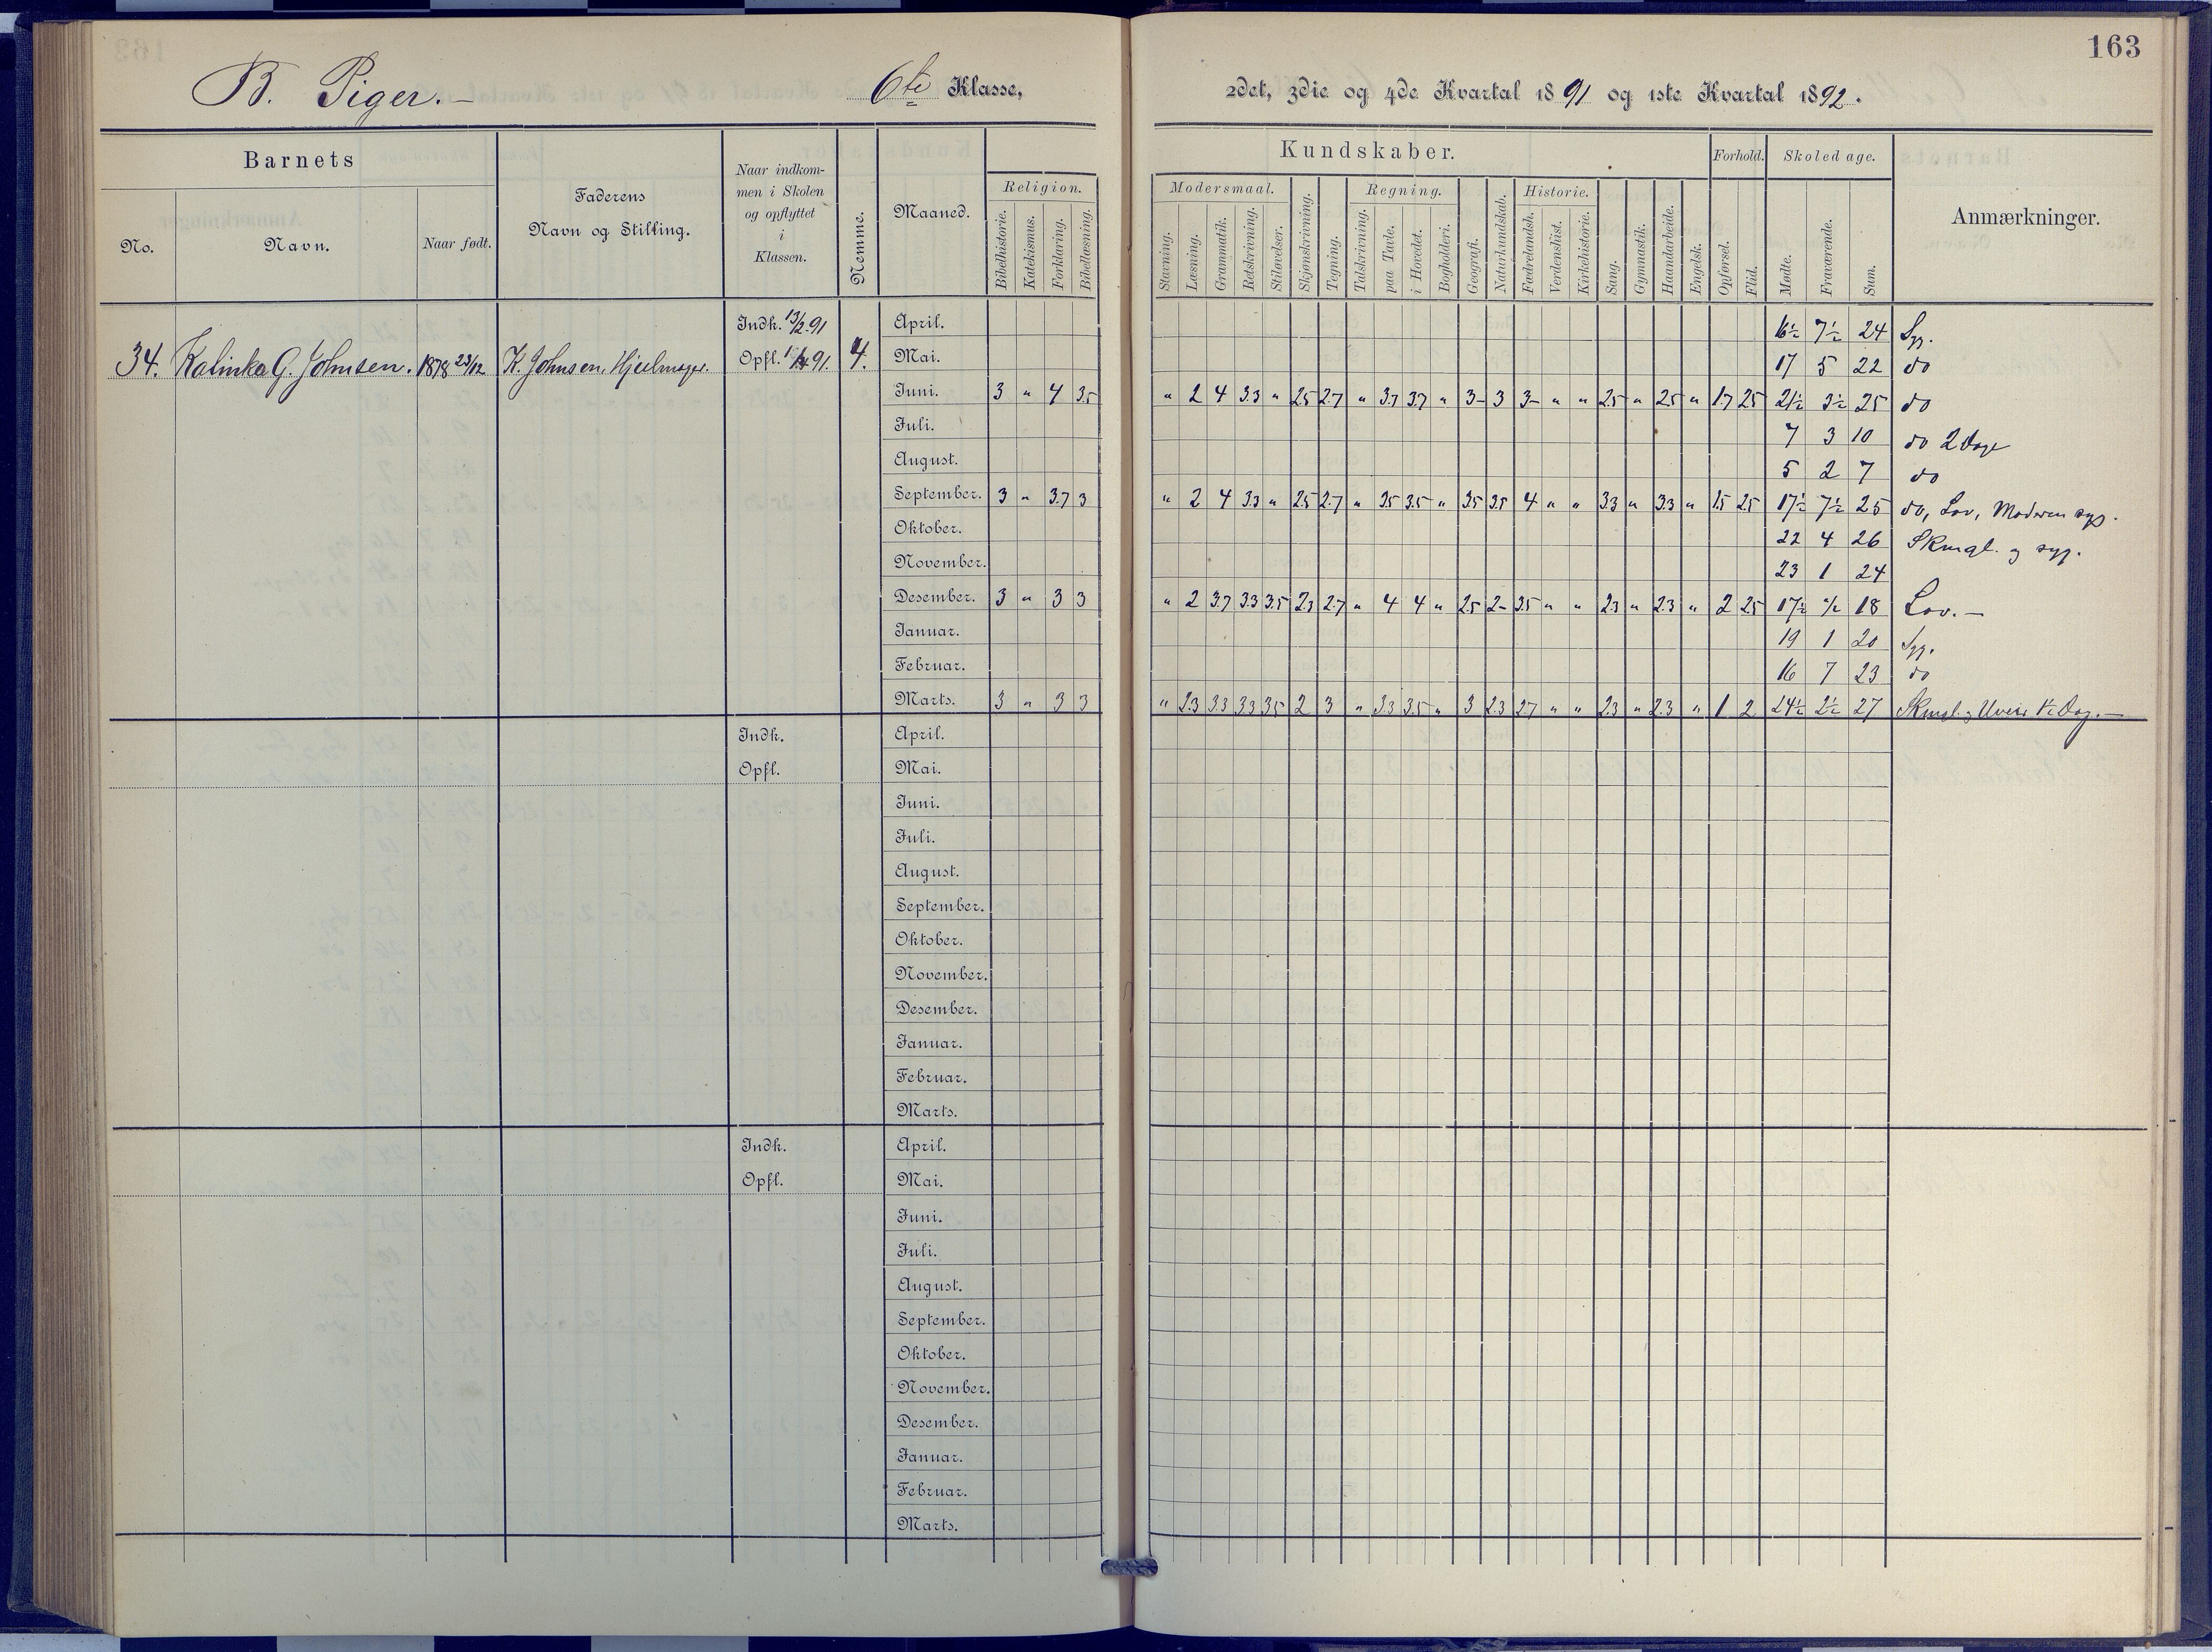 163
B. Piger.- 6te Klasse, 2det, 3die og 4de Kvartal 1891 og 1ste Kvartal 1892.
Barnets
No. Navn. Naar født.
Faderens
Navn og Stilling.
Naar indkom-
men i Skolen
og opflyttet
i
Klassen.
Nemme.
Maaned.
Kundskaber.
Religion.
Bibelhistorie. Katekismus. Forklaring. Bibellæsning.
Modersmaal.
Stavning. Læsning. Grammatik. Retskrivning. Stiløvelser.
Skjønskrivning. Tegning.
Regning.
Talskrivning. paa Tavle. i Hovedet. Bogholderi.
Geografi. Naturkundskab.
Historie.
Fædrelandsh. Verdenshist. Kirkehistorie.
Sang. Gymnastik. Haandarbeide. Engelsk.
Forhold.
Opførsel. Flid.
Skoledage.
Mødte. Fraværende. Sum.
Anmærkninger.
34. Kalinka G. Johnsen. 1878 23/12 K. Johnsen, Hjulmager.
Indk. 13/2 91
Opfl. 1/4 91.
4.
April. 16½ 7½ 24 Syg.
Mai. 17 5 22 do
Juni. 3 " 4 3.5 " 2 4 3.3 " 2.5 2.7 " 3.7 3.7 " 3- 3 3- " " 2.5 " 2.5 " 1.7 2.5 21½ 3½ 25 do
Juli. 7 3 10 do 2 Dage
August. 5 2 7 do
September. 3 " 3.7 3 " 2 4 3.3 " 2.5 2.7 " 3.5 3.5 " 3.5 3.5 4 " " 3.3 " 3.3 " 1.5 2.5 17½ 7½ 25 do, Lov, Moderen syg.
Oktober. 22 4 26 Skmgl. og syg.
November. 23 1 24
Desember. 3 " 3 3 " 2 3.7 3.3 3.5 2.3 2.7 " 4 4 " 2.5 2- 3.5 " " 2.3 " 2.3 " 2 2.5 17½ ½ 18 Lov.-
Januar. 19 1 20 Syg.
Februar. 16 7 23 do
Marts. 3 " 3 3 " 2.3 3.3 3.3 3.5 2 3 " 3.3 3.5 " 3 2.3 2.7 " " 2.3 " 2.3 " 1 2 24½ 2½ 27 Skmgl. og Uveir ½ Dag.-
Indk.
Opfl.
April.
Mai.
Juni.
Juli.
August.
September.
Oktober.
November.
Desember.
Januar.
Februar.
Marts.
Indk.
Opfl.
April.
Mai.
Juni.
Juli.
August.
September.
Oktober.
November.
Desember.
Januar.
Februar.
Marts.